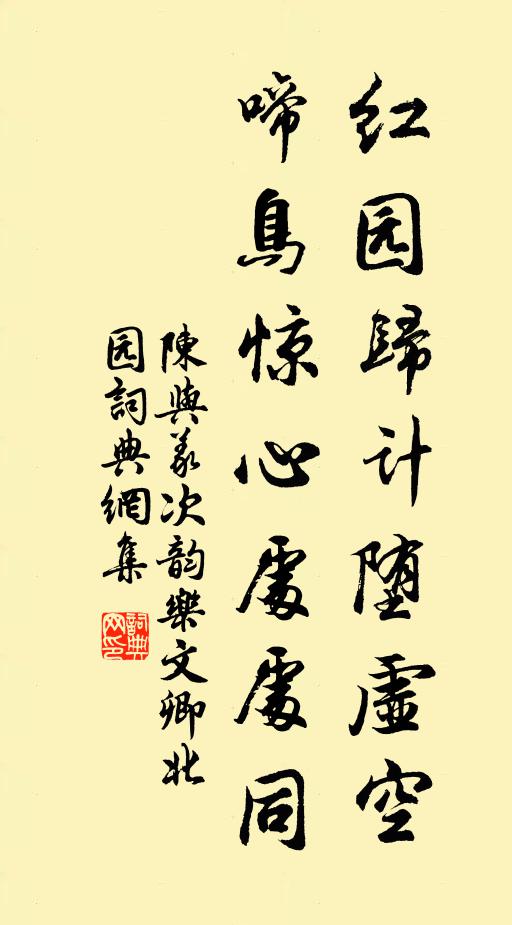 红园歸计堕虚空
啼鳥惊心處處同
陳與義次韵樂文卿北
园詞典網集
詞典网印